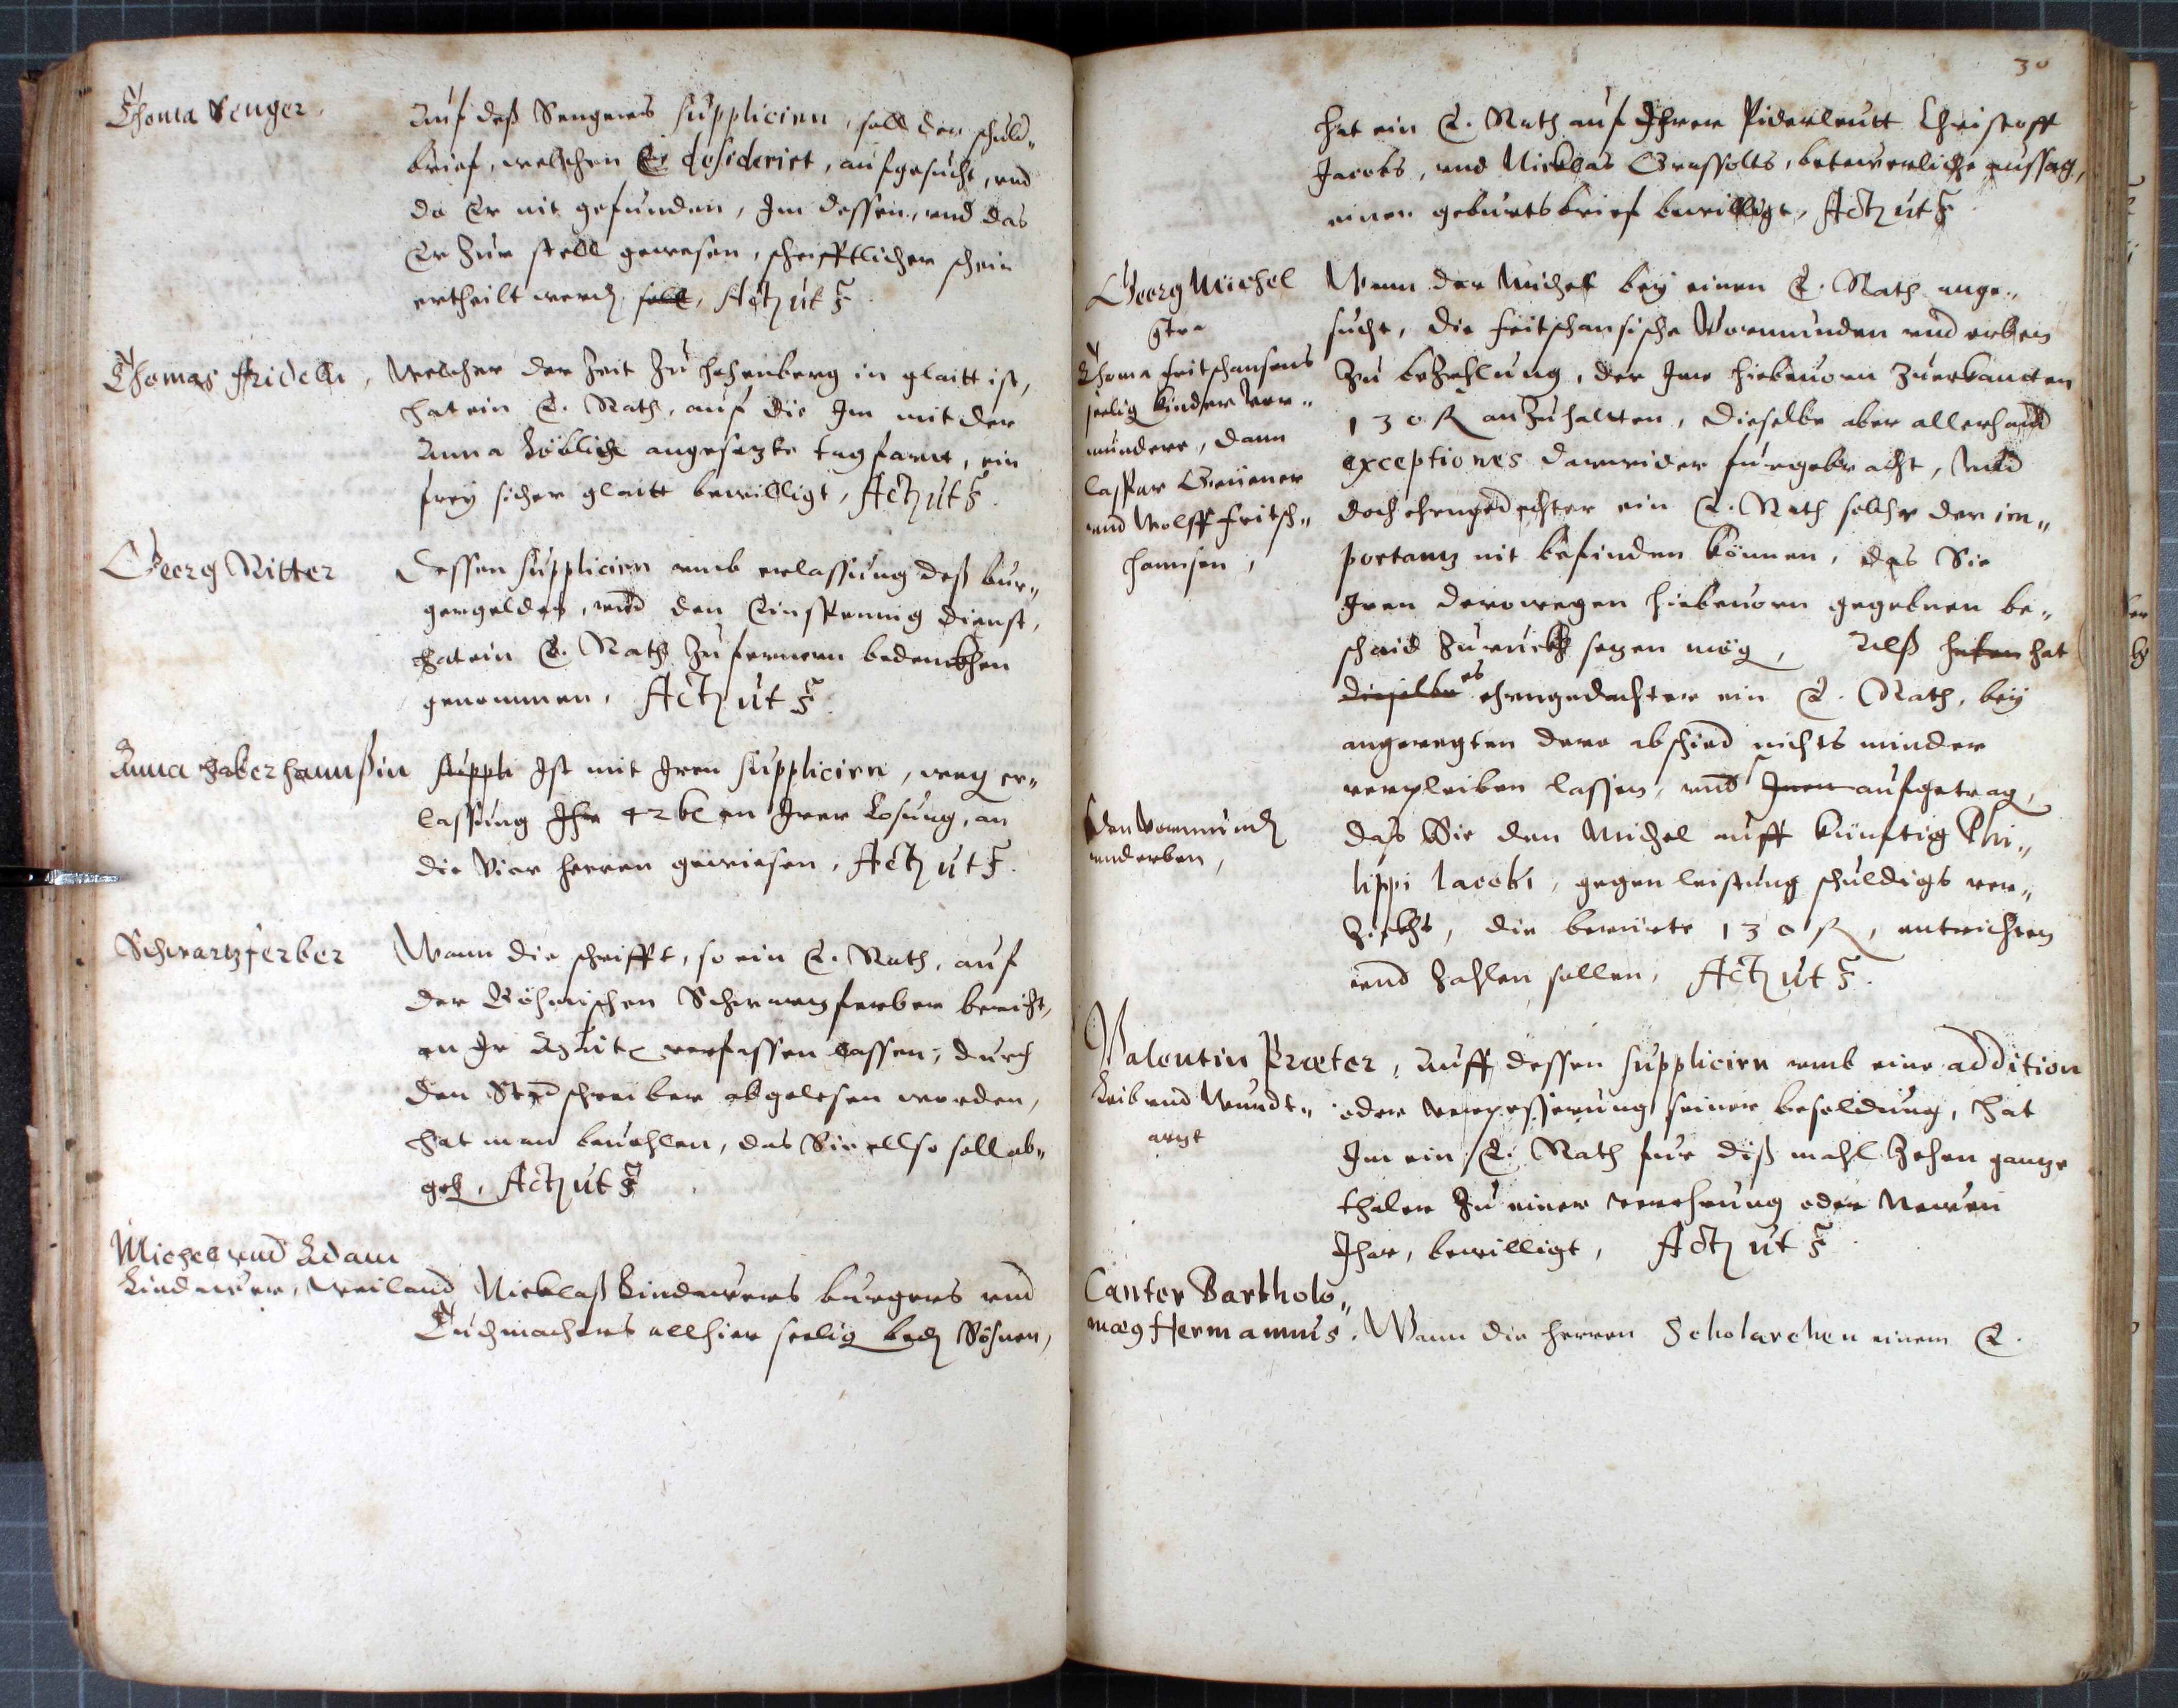 Thoma Senger.
Auf deß Sengers supplicirn, soll der schuld„
brief, welchen Er desiderirt, aufgesucht, vnd
da Er nit gefunden, Im dessen, vnd das
Er zur stell gewesen, schrifftlicher schein
ertheilt werdn soll, Actn ut s
Thomas Fridell,
Welcher der Zeit zu Hohenberg in glaitt ist,
hat ein E. Rath, auf die Im mit der
Anna angesezte tagfart, ein
frey sicher glaitt bewilligt, Actn ut s.
Georg Ritter
Dessen supplicirn vmb erlassung deß bur„
gergeldes, vnd den Einspennig dienst,
hat ein E. Rath zu fernern bedenckhen
genommen, Actn ut s
Anna Haberhannßin
suppli Ist mit Iren supplicirn, weg er„
lassung Ihr 42 an Irer Losung, an
die Vier herren gewiesen, Actn ut s.
Schwartzferber
Wann die schrifft, so ein E. Rath, auf
der Böhmischen Schwartzferber bericht,
an Ir verfassen lassen, durch
den Stadschreiber abgelesen worden,
hat man beuohlen, das Sie allso soll ab„
gehn, Actn ut s
Michel vnd Adam
Lindner, weiland Nicklaß Lindners burgers vnd
Tuchmachers allhier seelig bedn Söhnen,
30
hat ein E. Rath auf Ihrer Piderleutt Christoff
Jacobs, vnd Nicklas Grassolts, betewrliche aussag,
einen geburtsbrief bewilligt, Actn ut s
Georg Michel
Ctra
Thoma Fritschhansens
seelig Kinder Vor„
mundere, dann
Caspar Grüener
vnd Wolff Fritsch„
hannsen,
Wann der Michel bey einen E. Rath ange„
sucht, die Fritschhansische Vormunden vnd erben
zu bezahlung, der Ime hiebeuorn zuerkantten
130 R anzuhaltten, dieselbe aber allerhand
exceptiones darwider furgebracht, Vnd
doch ehrngedachter ein E. Rath solche der im„
portantz nit befinden können, das Sie
Iren derowegen hiebeuorn gegebnen be„
schaid zuruckh sezen mög, Alß haben hat
dieselbe es ehrngedachter ein E. Rath, bey
angeregten dero abschied nichts minder
verpleiben lassen, vnd Inen aufgetrag,
den Vormundn
vnd erben,
das Sie den Michel auff künfftig Phi„
lippi Iacobi, gegen leistung schuldigs ver„
zichts, die berürte 130 R, entrichten
vnd zahlen sollen, Actn ut s.
Valentin Præter,
Leib vnd Wundt„
arzt
Auff dessen supplicirn vmb eine addition
oder verpesserung seiner besoldung, hat
Im ein E. Rath fur diß mahl zehen gantze
thaler zu einer verehrung oder Newen
Ihar, bewilligt, Actn ut s
Cantor Bartholo„
mæ9 Hermannus.
Wann die herren Scholarchen einem E.